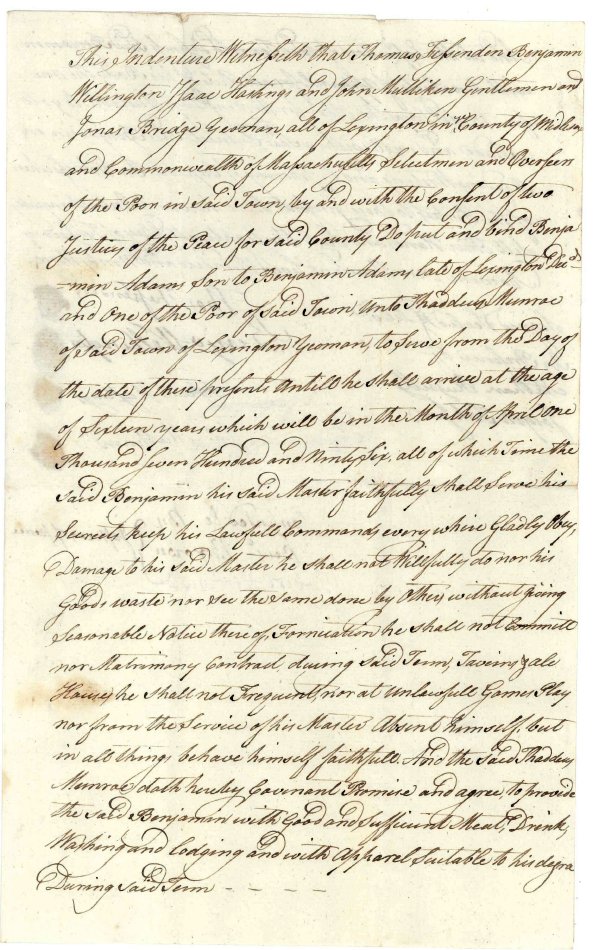 This Indenture Witnesseth that Thomas Fessenden Benjamin
Wellington Isaac Hastings and John Mulliken Gentlemen and
Jonas Bridge Yeoman, all of Lexington in ye County of Midlesex
and Commonwealth of Massachusetts Selectmen and Overseers
of the Poor in said Town, by and with the Consent of two
Justices of the Peace for said County Do put and bind Benja
-min Adams Son to Benjamin Adams late of Lexington Decsd
and One of the Poor of said Town, Unto Thaddeus Munroe
of said Town of Lexington Yeoman, to Serve from the Day of
the date of these presents Untill he shall arrive at the age
of Sixteen years which will be in the Month of April One
Thousand Seven Hundred and Ninty Six, all of which Time the
said Benjamin his said Master faithfully shall Serve his
Secreets keep his Lawfull Commands every where Gladly Obey,
Damage to his said Master he shall not Willfully do nor his
Goods waste nor see the same done by Others without giving
Seasonable Notice thereof, Fornication he shall not Committ
nor Matrimony Contract during said Term, Taverns & ale
Houses he shall not Frequent, nor at Unlawfull Games Play
nor from the Service of his Master Absent himself, but
in all things behave himself faithfull. And the said Thaddeus
Munroe doth hereby Covenant Promise and agree, to provide
the said Benjamin with Good and sufficient Meat, Drink,
Washing and Lodging and with Apparel Suitable to his degree
During said Term - - - -